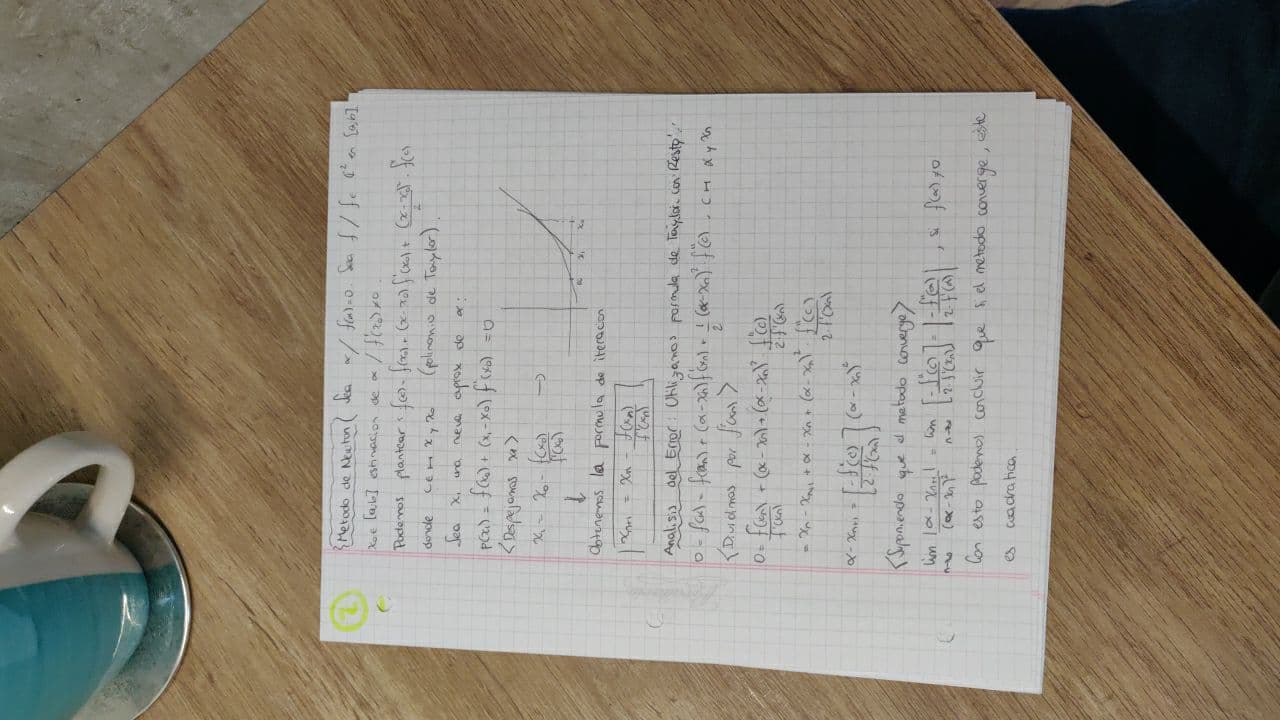 2
{Metodo de Newton{ Sea α / f(α)=0. Sea f / f ∈ C² en [a,b]
x₀ ∈ [a,b] estimacion de α / f'(x₀) ≠ 0.
Podemos plantear: f(x) = f(x₀) + (x-x₀) f'(x₀) + (x-x₀)²/2 · f''(c)
donde c ∈ H x y x₀ (polinomio de Taylor).
Sea x₁ una nueva aprox de α:
p(x₁) = f(x₀) + (x₁-x₀) f'(x₀) = 0
<Despejamos x₁>
x₁ = x₀ - f(x₀)/f'(x₀) →
α x₁ x₀
↓
Obtenemos la formula de iteracion
xₙ₊₁ = xₙ - f(xₙ)/f'(xₙ)
Analisis del Error: Utilizamos formula de Taylor con "Resto":
0 = f(α) = f(xₙ) + (α-xₙ) f'(xₙ) + 1/2 (α-xₙ)² · f''(c), c H α y xₙ
<Dividimos por f'(xₙ)>
0 = f(xₙ)/f'(xₙ) + (α-xₙ) + (α-xₙ)² · f''(c)/2·f'(xₙ)
= xₙ - xₙ₊₁ + α - xₙ + (α-xₙ)² · f''(c)/2·f'(xₙ)
α - xₙ₊₁ = [-f''(c)/2·f'(xₙ)] (α-xₙ)²
<Suponiendo que el metodo converge>
lim n→∞ |α-xₙ₊₁|/(α-xₙ)² = lim n→∞ [-f''(c)/2·f'(xₙ)] = |-f''(α)/2·f'(α)|, si f'(α) ≠ 0
Con esto podemos concluir que si el metodo converge, este
es cuadratica.